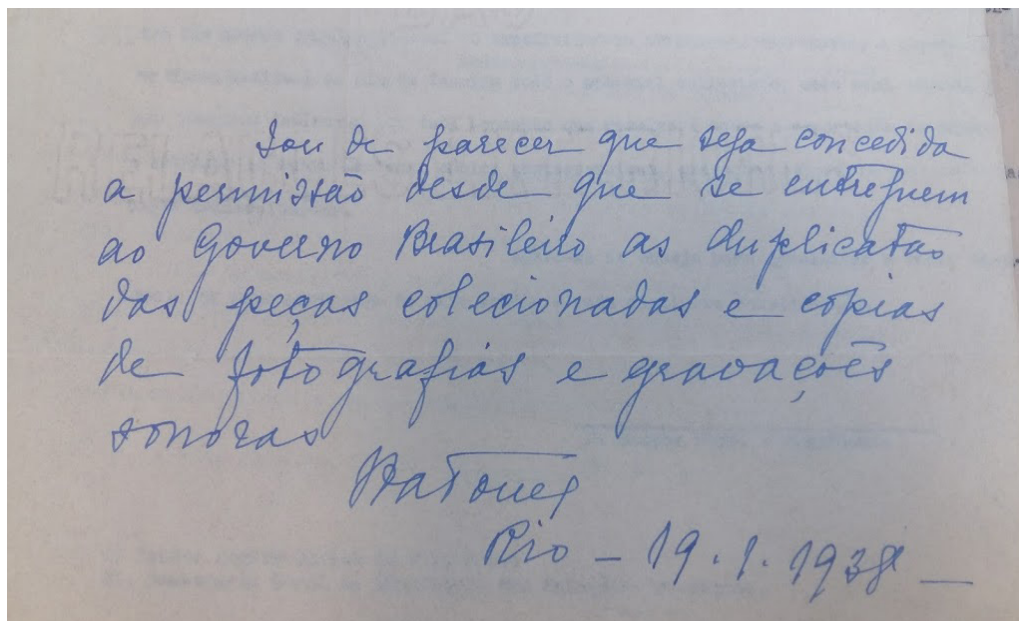 Sou de parecer que seja concedida
a permissão desde que se entreguem
ao Governo Brasileiro as duplicatas
das peças colecionadas e copias
de fotografias e gravações
sonoras
Rio - 19.1.1938 -